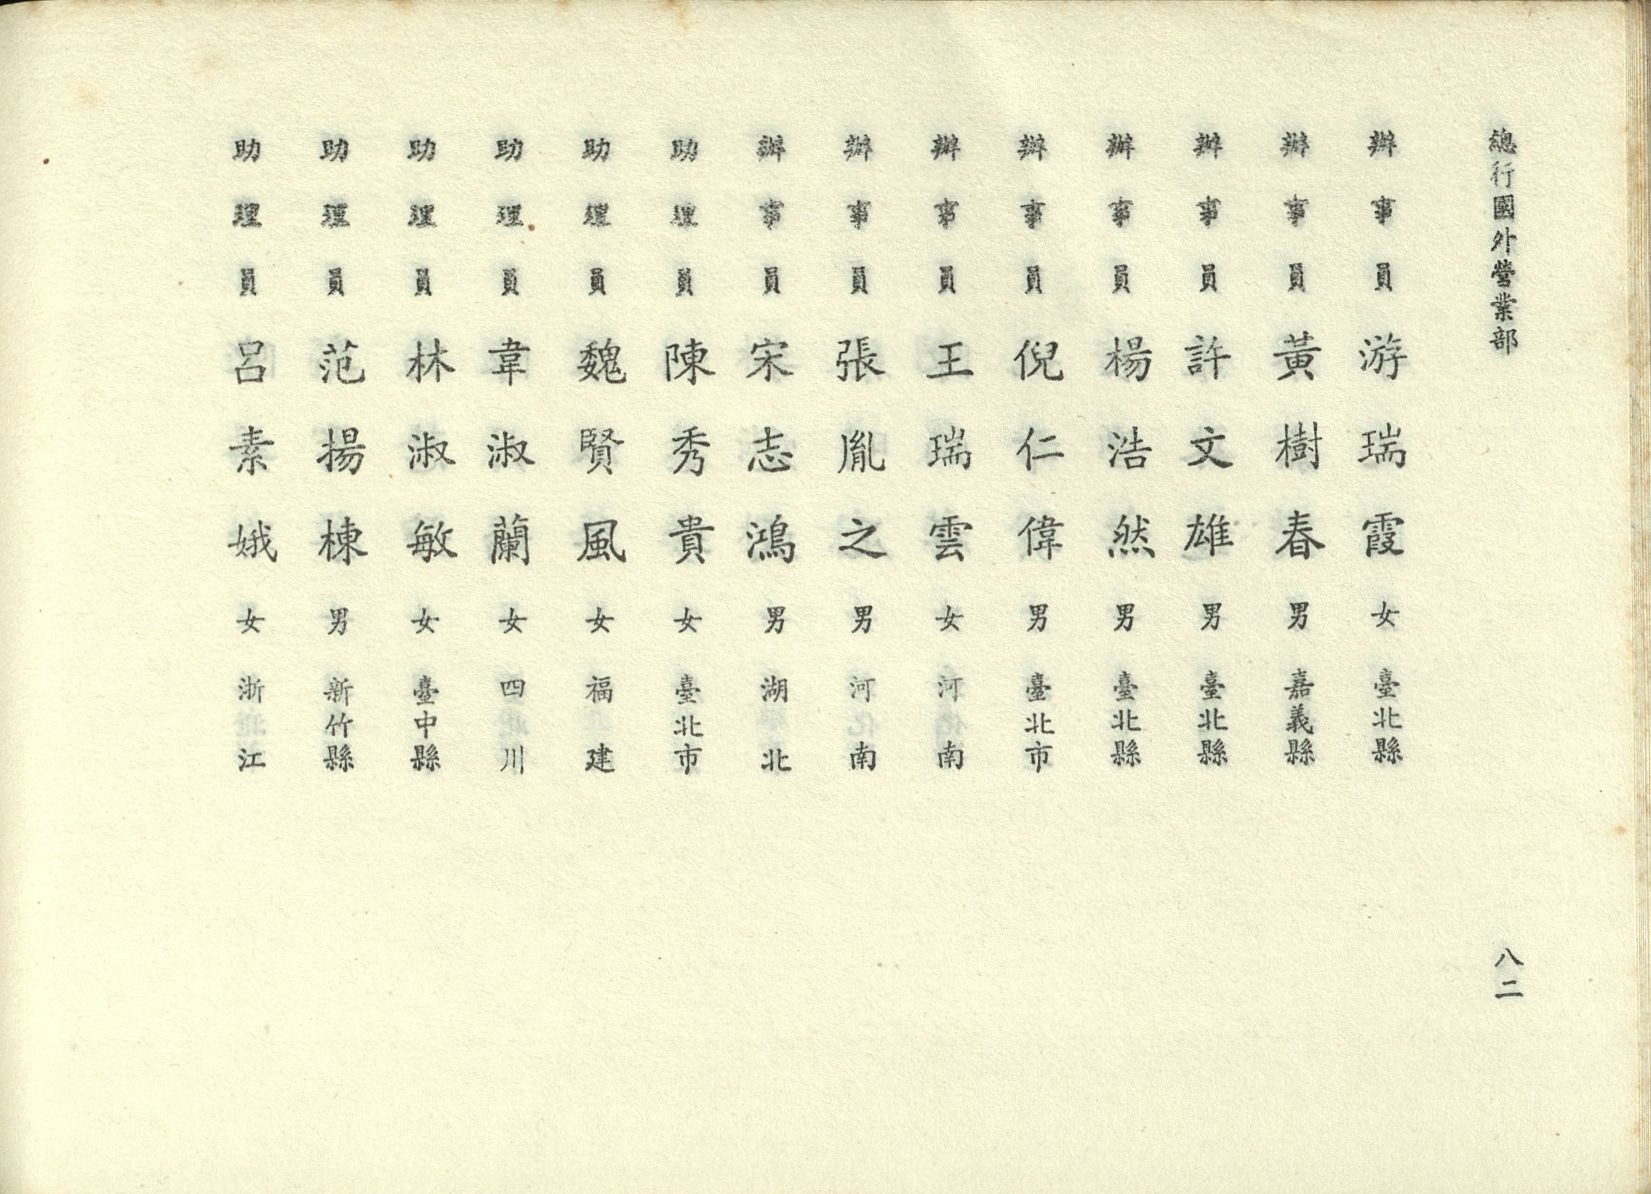 總行國外營業部
八二
辦事員游瑞霞女臺北縣
辦事員黃樹春男嘉義縣
辦事員許文雄男臺北縣
辦事員楊浩然男臺北縣
辦事員倪仁偉男臺北市
辦事員王瑞雲女河南
辦事員張胤之男河南
辦事員宋志鴻男湖北
助理員陳秀貴女臺北市
助理員魏賢風女福建
助理員韋淑蘭女四川
助理員林淑敏女臺中縣
助理員范揚棟男新竹縣
助理員呂素娥女浙江